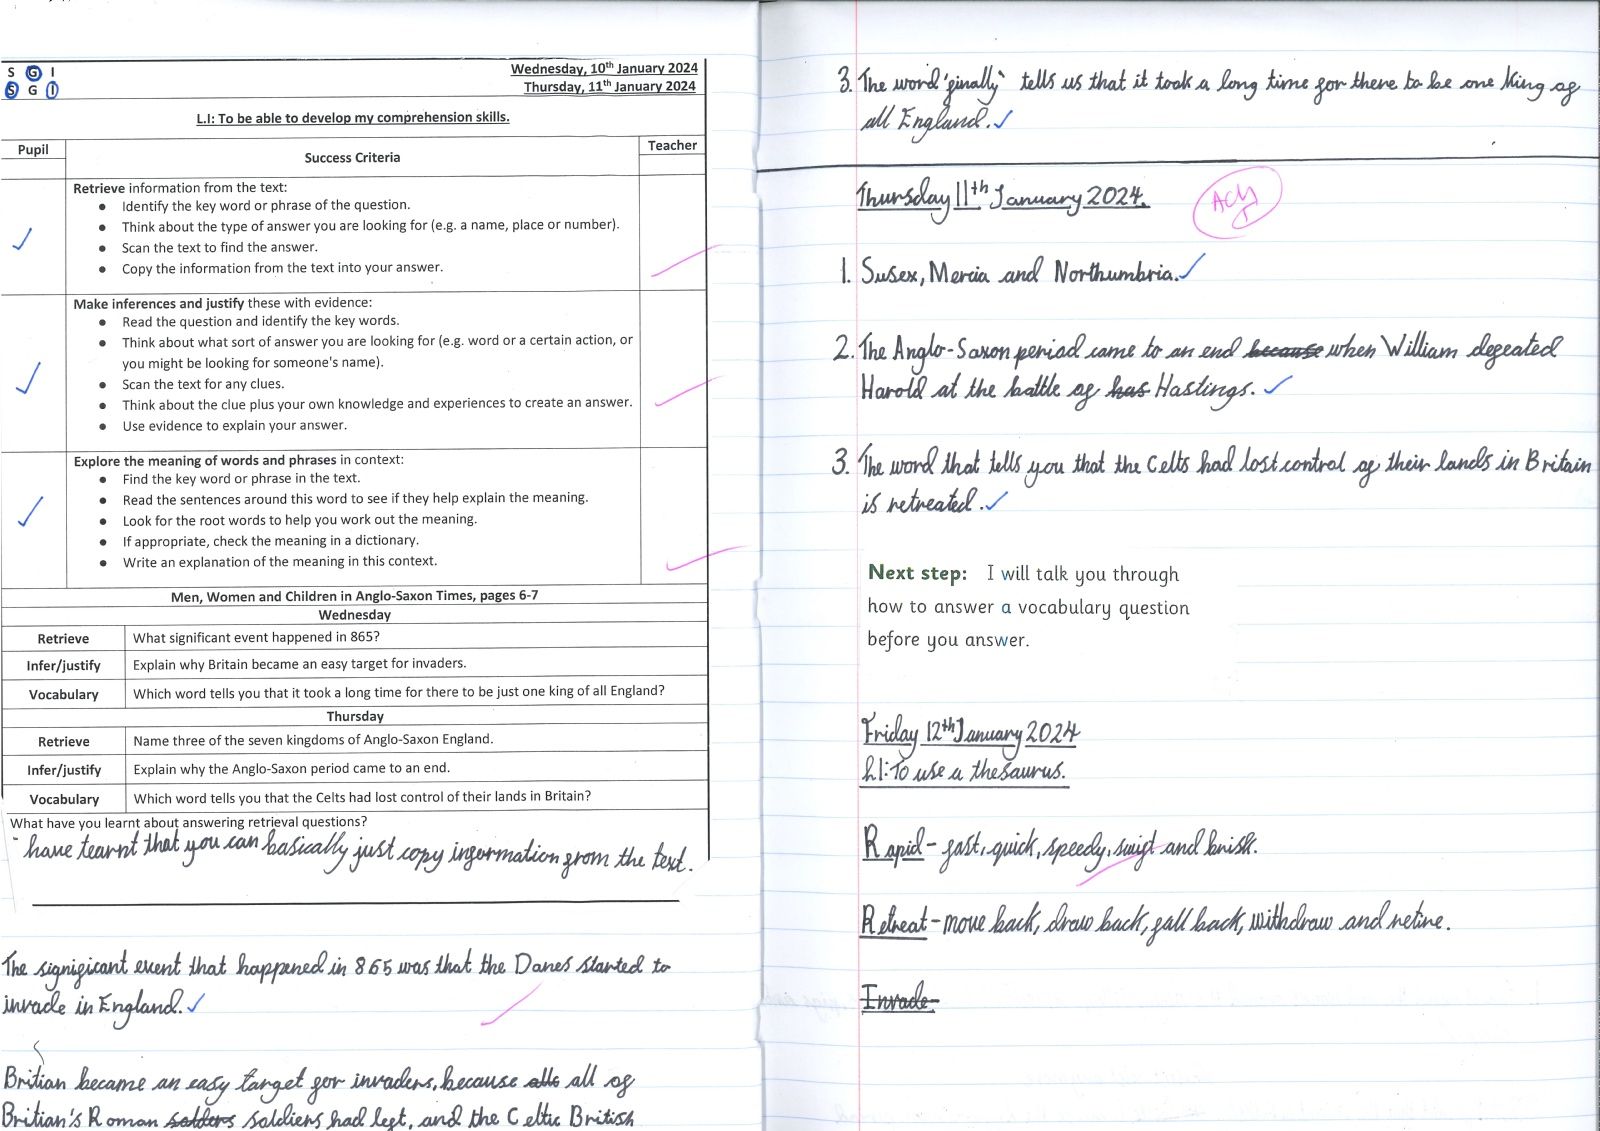 S G I
S G I
Wednesday, 10th January 2024
Thursday, 11th January 2024
L.I: To be able to develop my comprehension skills.
Pupil
Success Criteria
Teacher
Retrieve information from the text:
● Identify the key word or phrase of the question.
● Think about the type of answer you are looking for (e.g. a name, place or number).
● Scan the text to find the answer.
● Copy the information from the text into your answer.
Make inferences and justify these with evidence:
● Read the question and identify the key words.
● Think about what sort of answer you are looking for (e.g. word or a certain action, or
you might be looking for someone's name).
● Scan the text for any clues.
● Think about the clue plus your own knowledge and experiences to create an answer.
● Use evidence to explain your answer.
Explore the meaning of words and phrases in context:
● Find the key word or phrase in the text.
● Read the sentences around this word to see if they help explain the meaning.
● Look for the root words to help you work out the meaning.
● If appropriate, check the meaning in a dictionary.
● Write an explanation of the meaning in this context.
Men, Women and Children in Anglo-Saxon Times, pages 6-7
Wednesday
Retrieve What significant event happened in 865?
Infer/justify Explain why Britain became an easy target for invaders.
Vocabulary Which word tells you that it took a long time for there to be just one king of all England?
Thursday
Retrieve Name three of the seven kingdoms of Anglo-Saxon England.
Infer/justify Explain why the Anglo-Saxon period came to an end.
Vocabulary Which word tells you that the Celts had lost control of their lands in Britain?
What have you learnt about answering retrieval questions?
have learnt that you can basically just copy information from the text.
The significant event that happened in 865 was that the Danes started to
invade in England.
Britian became an easy target for invaders, because alls all of
Britian's Roman solders soldiers had left, and the Celtic British
3. The word 'finally' tells us that it took a long time for there to be one King of
all England.
Thursday 11th January 2024.
1. Susex, Mercia and Northumbria.
2. The Anglo-Saxon period came to an end because when William defeated
Harold at the battle of has Hastings.
3. The word that tells you that the Celts had lost control of their lands in Britain
is retreated.
Next step: I will talk you through
how to answer a vocabulary question
before you answer.
Friday 12th January 2024
L.I: To use a thesaurus.
Rapid - fast, quick, speedy, swift and brisk.
Retreat - move back, draw back, fall back, withdraw and retire.
Invade-